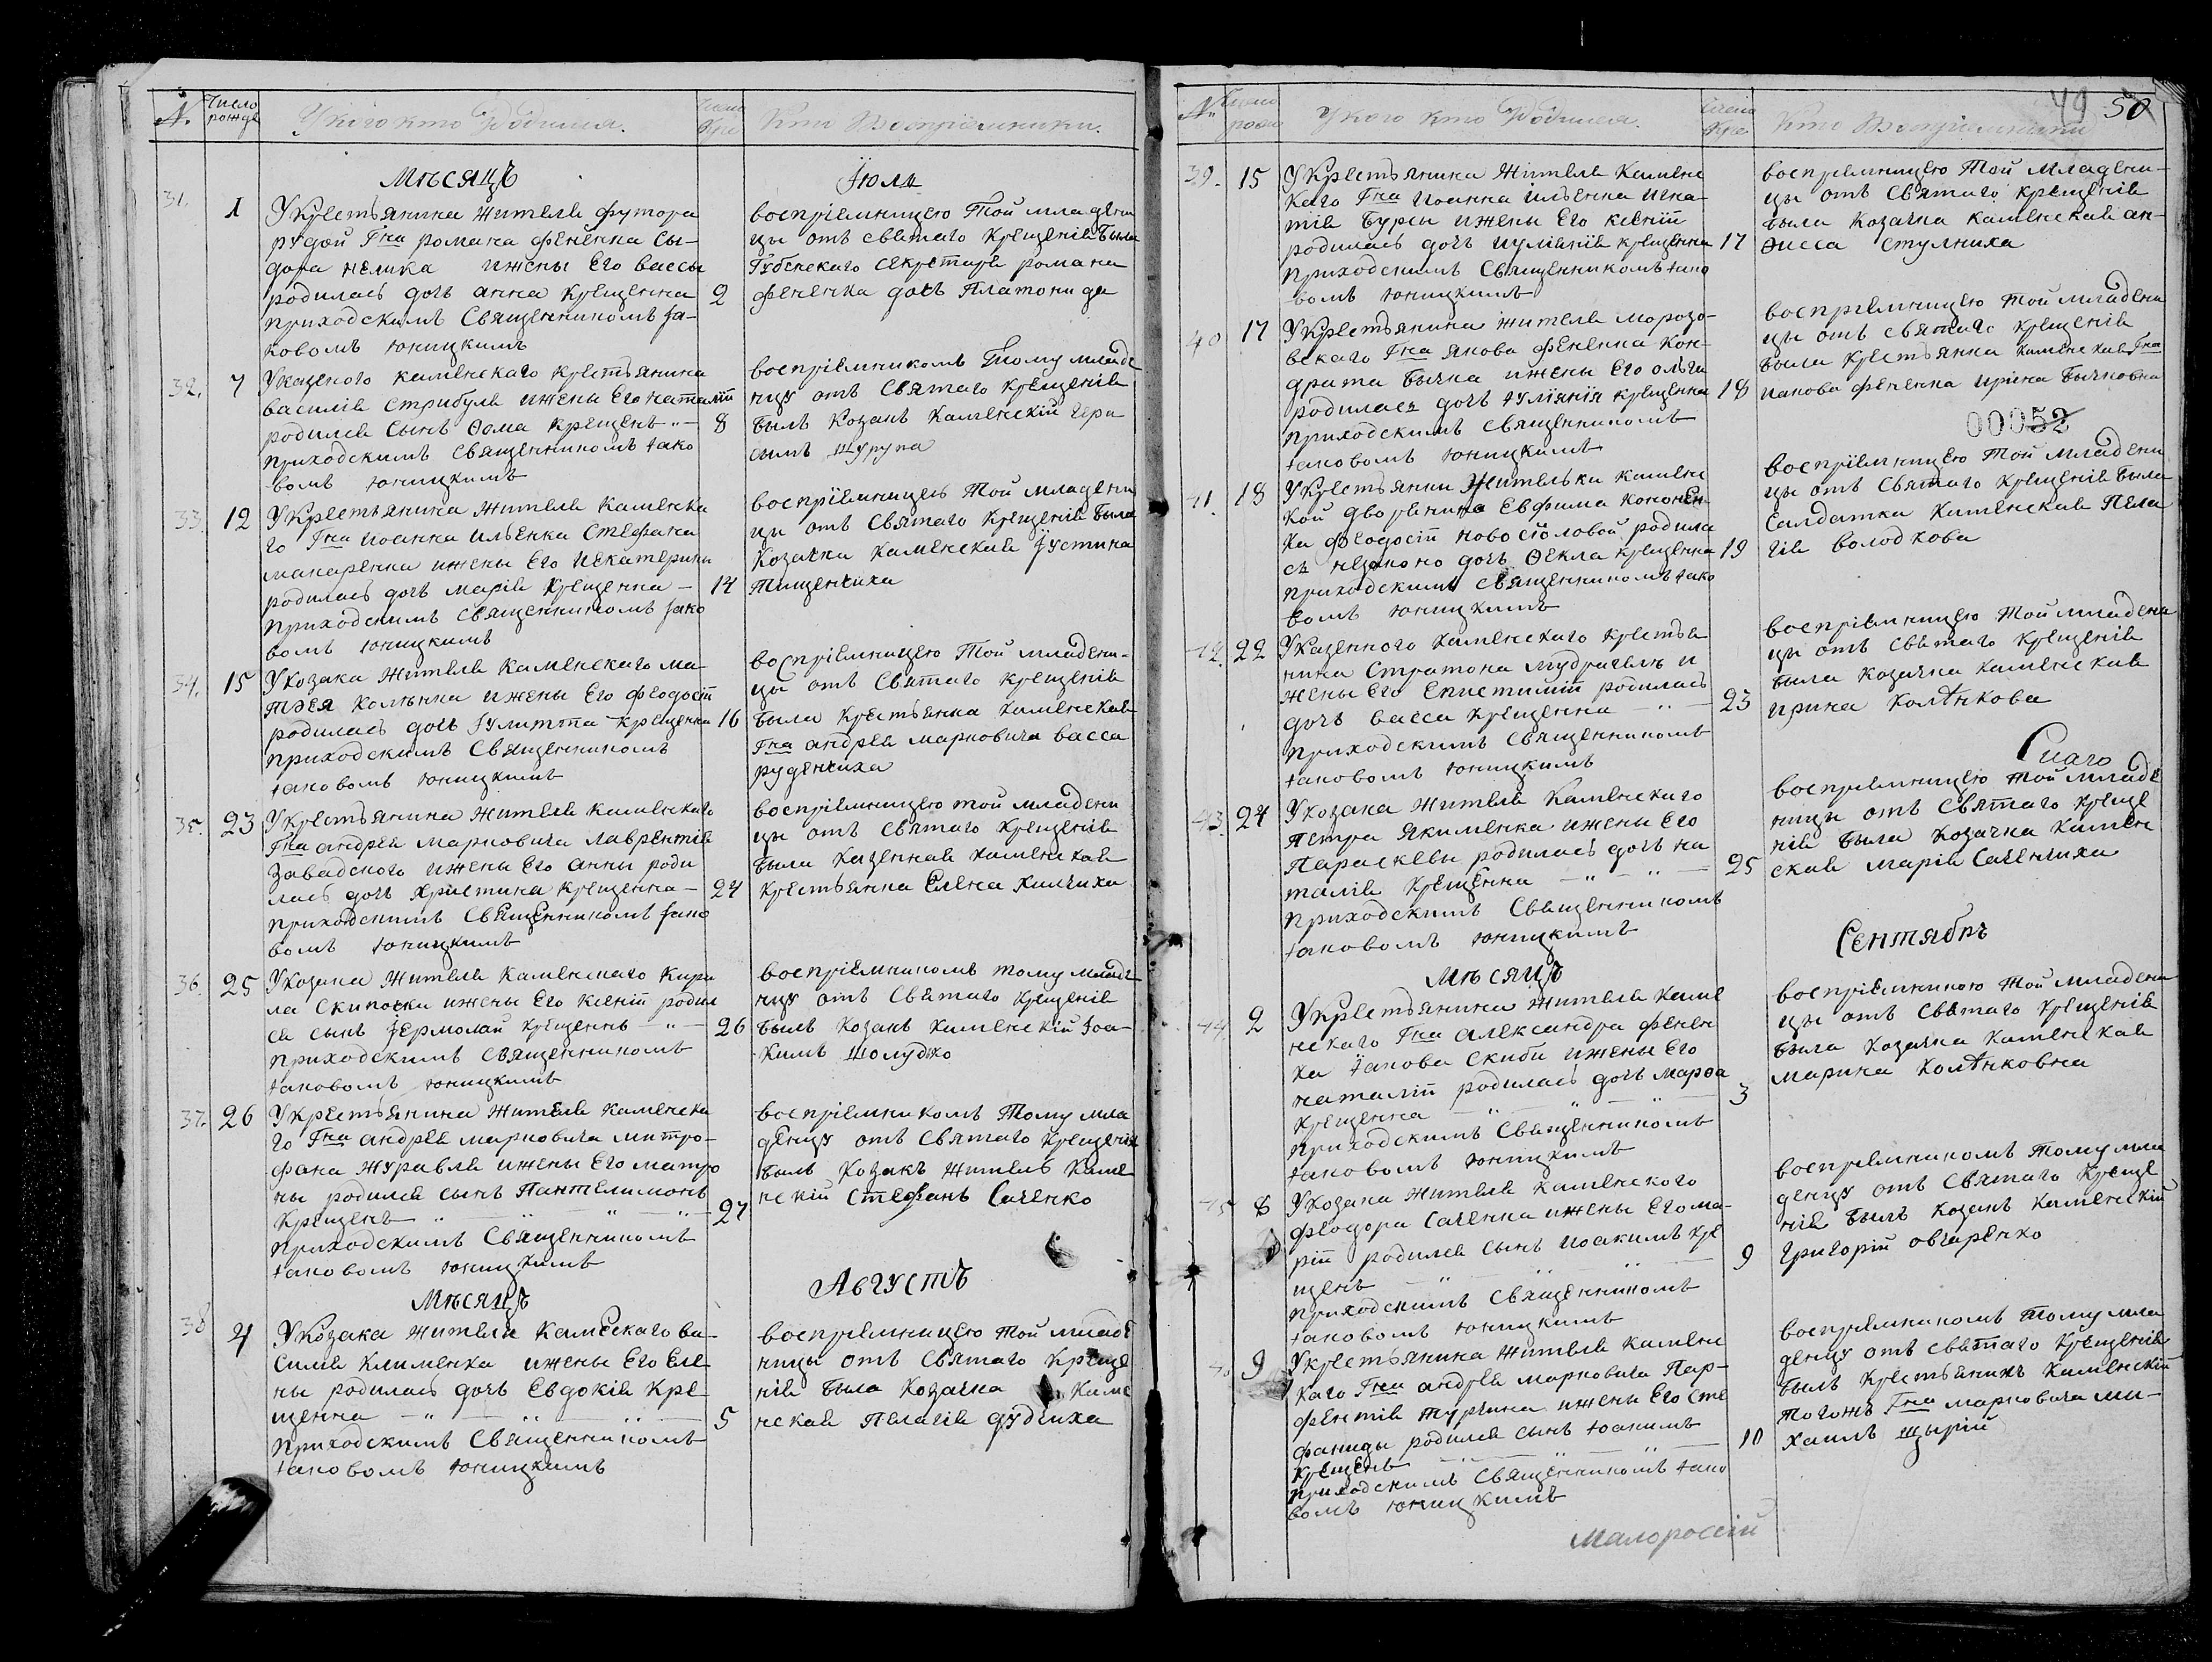 №.
Число рожде
У кого кто Родился.
Число Кре
Кто Восприемники.
Мѣсяцъ
Іюля
31.
1
У Крестьянина жителя футора
рудой Гна романа фененка Сы-
дора велика и жены Его вассы
родилась дочь анна крещенна
2
приходскимъ Священникомъ Іа-
ковомъ Юницкимъ
воспріемницею Той младени
цы отъ святаго Крещенія была
Губенскаго секретаря романа
фененка дочь Платонида
32.
7
У Казеного каменскаго крестьянина
василія Стрибуля и жены Его наталіи
родился Сынъ Ѳома крещенъ
8
приходскимъ Священникомъ Іако
вомъ Юницкимъ
воспріемникомъ Тому младе
нцу отъ Святаго Крещенія
былъ Козакъ Каменскій Гера
симъ Шурупа
33.
12
У Крестьянина жителя Каменска
го Гна Иоанна Ильенка Стефана
макаренка и жены Его Иекатерины
родилась дочь марія Крещенна
14
приходскимъ Священникомъ Іако
вомъ Юницкимъ
воспріемницею Той младени
цы отъ Святаго Крещенія была
Козачка Каменская Іустина
Тищенчиха
34.
15
У Козака жителя Каменскаго ма-
тѳея Колѣнка и жены Его феодосіи
родилась дочь Іулитта крещенна
16
приходскимъ Священникомъ
Іаковомъ Юницкимъ
воспріемницею Той младени-
цы отъ Святаго крещенія
была Крестьянка Каменская
Гна андрея марковича васса
руденчиха
35.
23
У Крестьянина жителя Каменскаго
Гна андрея марковича лаврентія
Завадского и жены Его анны роди
лась дочь христина крещенна
24
приходскимъ Священникомъ Іако
вомъ Юницкимъ
воспріемницею той младени
цы отъ Святаго Крещенія
была Казенная Каменская
Крестьянка Елена Химчиха
36.
25
У Козака жителя Каменскаго Кири
ла Скипочки и жены Его Ксеніи родил
ся сынъ Іермолай крещенъ
26
приходскимъ Священникомъ
Іаковомъ Юницкимъ
воспріемникомъ тому младе
нцу отъ Святаго крещенія
былъ Козакъ Каменскій Іоа-
кимъ Шолудко
37.
26
У Крестьянина жителя Каменска
го Гна андрея марковича митро-
фана журавля и жены Его матро
ны родился сынъ Пантелимонъ
Крещенъ
27
приходскимъ Священникомъ
Іаковомъ Юницкимъ
воспріемникомъ Тому мла
денцу отъ Святаго Крещенія
былъ Козакъ житель Каме
нскій Стефанъ Саченко
Мѣсяцъ
Августъ
38
4
У Козака жителя Камескаго ва-
силія Клименка и жены Его Еле
ны родилась дочь Евдокія Кре
щенна
5
приходскимъ Священникомъ
Іаковомъ Юницкимъ
воспріемницею той младе
ницы отъ Святаго Креще
нія была Козачка Каме
нская Пелагія дудчиха
№.
Число рожд
У кого кто Родился.
Число Кре
Кто Восприемники
49 50
39.
15
У Крестьянина жителя Каменс
каго Гна Иоанна Ильенка Игна-
тія Бурсы и жены Его ксеніи
родилась дочь Иуліянія крещенна
17
приходскимъ Священникомъ Іако
вомъ Юницкимъ
воспріемницею Той Младени-
цы отъ Святаго Крещенія
была Козачка каменская ан-
ѳисса Ступниха
40
17
У Крестьянина жителя морозо-
вскаго Гна Якова фененка Кон-
драта Бычка и жены Его Ольги
родилась дочь Іуліянія крещенна
18
приходскимъ Священникомъ
Іаковомъ Юницкимъ
воспріемницею той младени
цы отъ Святаго Крещенія
была Крестьянка каменская Гна
иакова фененка ирина Бычковна
00052
41.
18
У Крестьянки Жительки Каменс
кой дворянина Евфима Кононен
ка феодосіи новосіоловой родила
сь незаконо дочь Ѳекла крещенна
19
приходскимъ Священникомъ Іако
вомъ Юницкимъ
воспріемницею Той Младени
цы отъ Святаго Крещенія была
Салдатка Каменская Пела
гія володкова
42.
22
У Казенного Каменскаго крестья
нина Стратона мудрачыхъ и
жены Его Епистиміи родилась
дочь васса крещенна
23
приходскимъ Священникомъ
Іаковомъ Юницкимъ
воспріемницею Той младени
цы отъ Святаго Крещенія
была Козачка каменская
ирина Колѣнкова
43.
24
У Козака жителя Каменского
Петра Якименка и жены Его
Параскевы родилась дочь на
талія Крещенна
25
приходскимъ Священникомъ
Іаковомъ Юницкимъ
воспріемницею той Младе
ницы отъ Святаго Креще
нія была Козачка Камен
ская марія Саченчиха
Мѣсяцъ
Сентябръ
44.
2
У Крестьянина жителя Каме
нскаго Гна Александра фенен
ка Іакова Скибы и жены Его
наталіи родилась дочь марѳа
Крещенна
3
приходскимъ Священникомъ
Іаковомъ Юницкимъ
воспріемникою Той младени
цы отъ Святаго Крещенія
была Козачка Каменская
марина Колѣнковна
45
8
У Козака жителя каменского
феодора Саченка и жены Его ма-
ріи родился сынъ Иоакимъ кре
щенъ
9
приходскимъ Священникомъ
Іаковомъ Юницкимъ
воспріемникомъ Тому мла
денцу отъ Святаго Креще
нія былъ Козакъ Каменскій
григорій овчаренко
9
У крестьянина жителя Каменс
каго Гна андрея марковича Пар-
фентія Турчина и жены Его Сте
фаниды родился сынъ Іоакимъ
крещенъ
10
приходскимъ Священникомъ Іако
вомъ Юницкимъ
воспріемникомъ Тому мла
денцу отъ Святаго Крещенія
былъ Крестьянинъ Каменскій
тогожъ Гна марковича ми-
хаилъ щырій
Малороссій